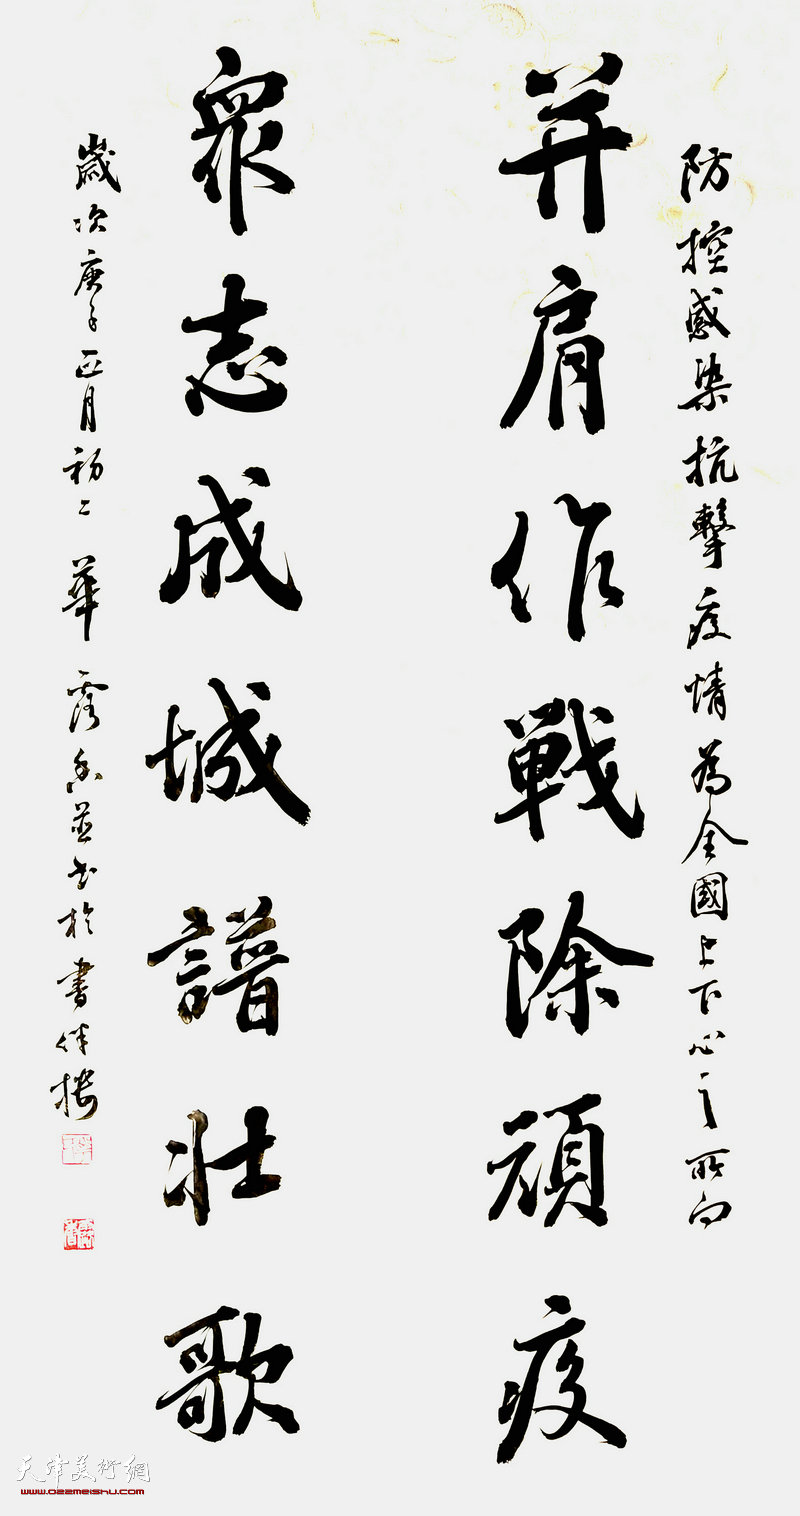 防控感染抗擊疫情為全國上下心之所向
并肩作戦除頑疫
衆志成城譜壮歌
歲次庚子正月初二 華並书於書伴楼
天津美術網
www.022meishu.com